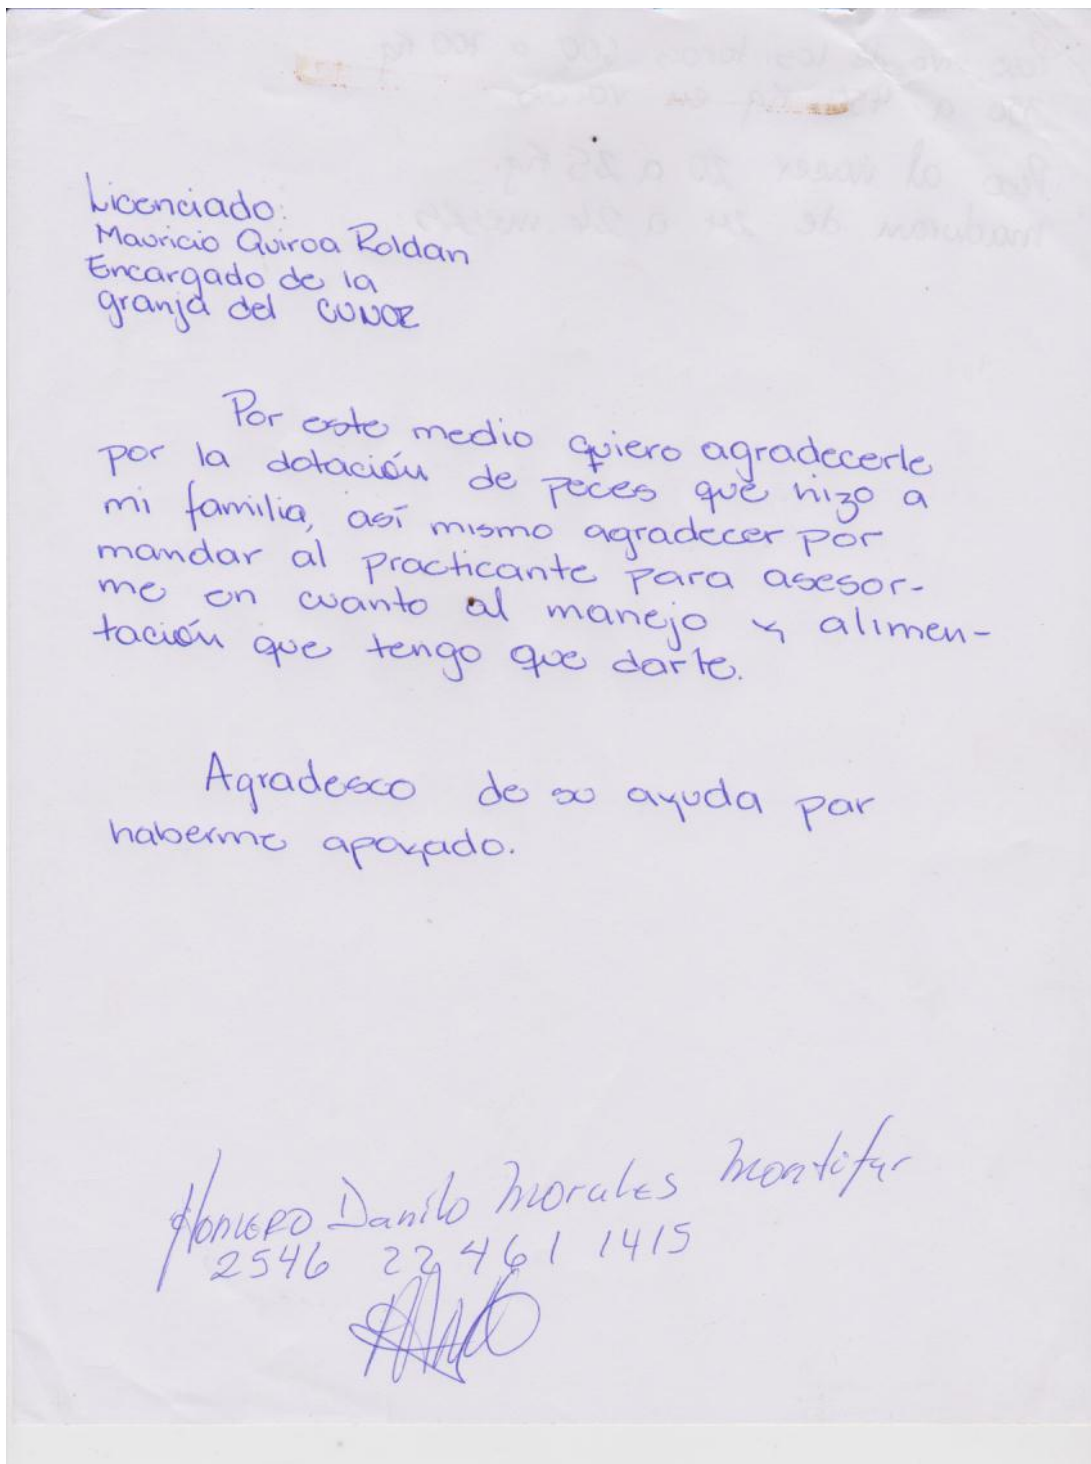 Licenciado:
Mauricio Quiroa Roldan
Encargado de la
granja del CUNOR
Por este medio quiero agradecerle
por la dotación de peces que hizo a
mi familia, así mismo agradecer por
mandar al practicante para asesor-
me en cuanto al manejo y alimen-
tación que tengo que darle.
Agradesco de su ayuda por
haberme apoyado.
Homero Danilo Morales Montifar
2546 22461 1415